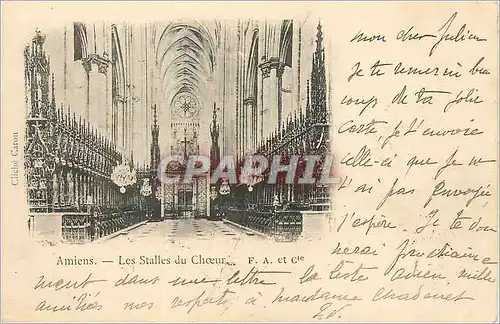 mon cher Julien
Je te remercie beau
coup de ta jolie
carte, je t'envoie
celle-ci que je ne
t'ai pas envoyée
j'espère. Je te don
nerai prochaine
Cliché Caron
CPARAMA
Amiens. — Les Stalles du Chœur... F. A. et Cie
ment dans une lettre la liste adieu mille
amitiés mes respects à madame Chadenet